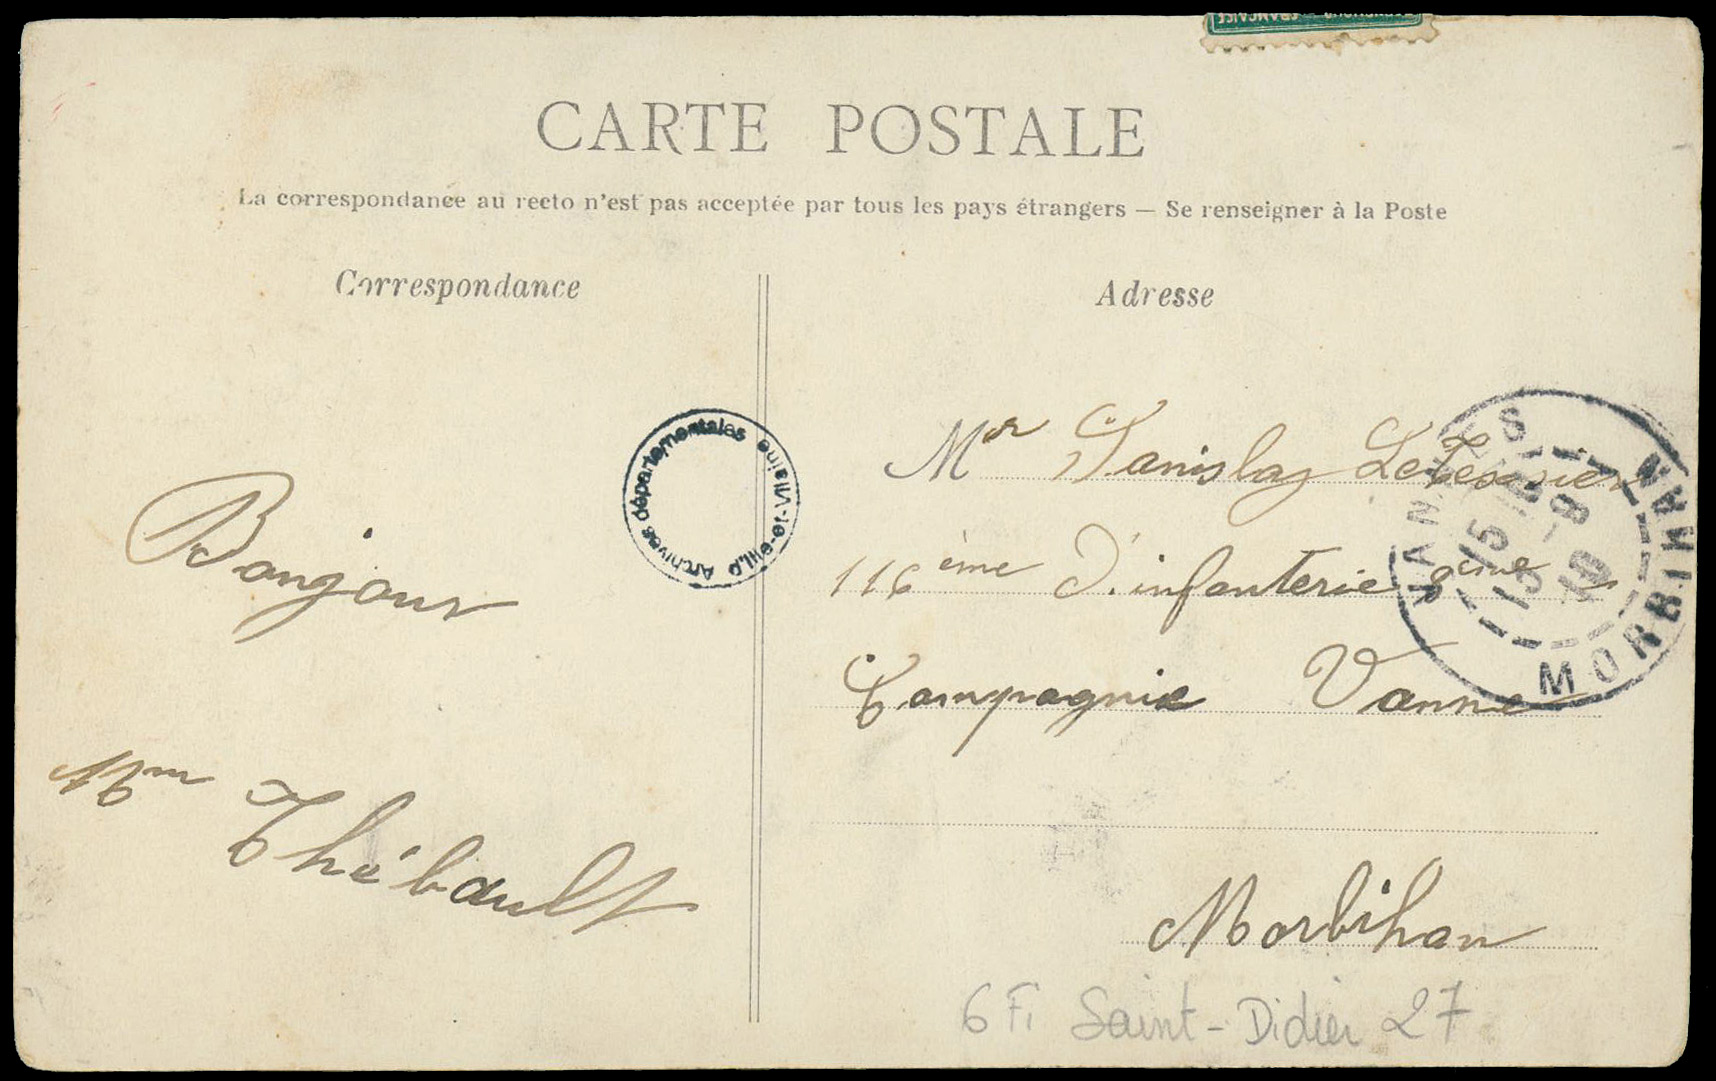 CARTE POSTALE
La correspondance au recto n'est pas acceptée par tous les pays étrangers — Se renseigner à la Poste
Correspondance
Adresse
Bonjour
Mme Thébault
Archives départementales d'Ille-et-Vilaine
Mr Stanislas Letessier
116ème d'infanterie 8ème
Compagnie Vanne
Morbihan
VANNES
15
15 -8
10
MORBIHAN
6 Fi Saint-Didier 27